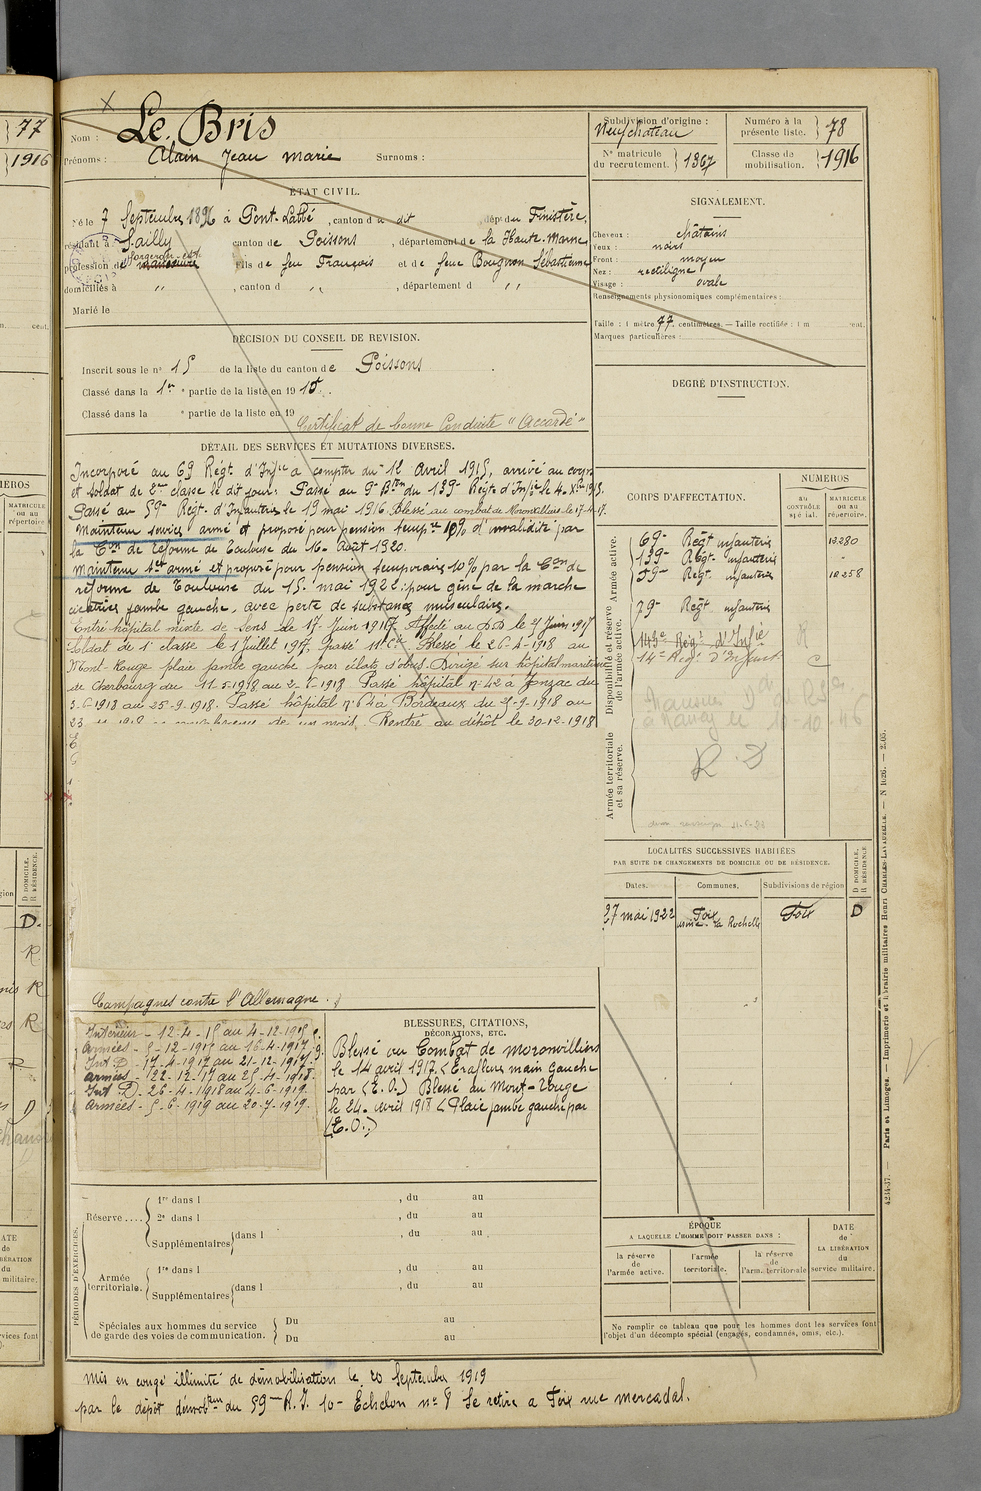 77
1916
Nom : Le Bris
Prénoms : Alain Jean Marie Surnoms :
ÉTAT CIVIL.
Né le 7 Septembre 1896 à Pont-Labbé, canton du dit dépt du Finistère,
résidant à Sailly canton de Poissons, département de la Haute-Marne
profession de manoeuvre fils de feu François et de feue Bougnon Sébastienne
domiciliés à ,, , canton d ,, , département d ,,
Marié le
DÉCISION DU CONSEIL DE REVISION.
Inscrit sous le n° 15 de la liste du canton de Poissons
Classé dans la 1re partie de la liste en 1915.
Classé dans la e partie de la liste en 19
Certificat de bonne Conduite "Accordé"
DÉTAIL DES SERVICES ET MUTATIONS DIVERSES.
Incorporé au 69 Régt. d'Infie à compter du 12 Avril 1915, arrivé au corps
et soldat de 2me classe le dit jour. Passé au 9e Bton du 139e Régt. d'Infie le 4 Xbre 1915.
Passé au 59e Régt. d'Infanterie le 19 mai 1916. Blessé au combat de Moronvilliers le 17-4-17.
Maintenu service armé et proposé pour pension tempre 10% d'invalidité par
la Con de réforme de Toulouse du 16 Août 1920.
Maintenu sce armé et proposé pour pension temporaire 10% par la Con de
réforme de Toulouse du 15 mai 1922 : pour gêne de la marche
cicatrice jambe gauche, avec perte de substance musculaire.
Entré hôpital mixte de Sens le 17 Juin 1917 Affecté au DD le 21 Juin 1917
Soldat de 1e classe le 1 Juillet 1917. Passé 11e Cie Blessé le 26-4-1918 au
Mont-Rouge plaie jambe gauche par éclats d'obus. Dirigé sur hôpital maritime
de Cherbourg du 11-5-1918 au 2-6-1918 Passé hôpital n° 42 à Jonzac du
3-6-1918 au 25-9-1918. Passé hôpital n° 64 à Bordeaux du 25-9-1918 au
23 11 1918 convalescence de un mois. Rentré au dépôt le 30-12-1918
Campagnes contre l'Allemagne.
Intérieur - 12-4-15 au 4-12-1915.
Armées - 5-12-1915 au 16-4-1917.
Int D - 17-4-1917 au 21-12-1917.
Armées - 22-12-17 au 25-4-1918.
Int D. 26-4-1918 au 4-6-1919.
Armées - 5-6-1919 au 20-7-1919.
BLESSURES, CITATIONS,
DÉCORATIONS, ETC.
Blessé au Combat de Moronvilliers
le 14 avril 1917 (Eraflure main gauche
par (E.O.) Blessé au Mont-Rouge
le 24 avril 1918 (Plaie jambe gauche par
(E.O.)
PÉRIODES D'EXERCICES.
Réserve ....
1re dans l , du au
2e dans l , du au
Supplémentaires dans l , du au
Armée territoriale.
1re dans l , du au
Supplémentaires dans l , du au
Spéciales aux hommes du service Du au
de garde des voies de communication. Du au
Mis en congé illimité de démobilisation le 20 Septembre 1919
par le dépôt démobteur du 59me R.I. 10e Echelon n° 8 Se retire a Foix rue mercadal.
Subdivision d'origine : Neufchateau
Numéro à la présente liste. 78
N° matricule du recrutement. 1367
Classe de mobilisation. 1916
SIGNALEMENT.
Cheveux : châtains
Yeux : noirs
Front : moyen
Nez : rectiligne
Visage : ovale
Renseignements physionomiques complémentaires :
Taille : 1 mètre 77 centimètres. — Taille rectifiée : 1 m cent.
Marques particulières :
DEGRÉ D'INSTRUCTION.
CORPS D'AFFECTATION.
NUMÉROS
au contrôle spécial.
MATRICULE ou au répertoire.
Armée active.
69e Régt infanterie 12280
139e Régt infanterie "
59e Régt infanterie 10258
Disponibilité et réserve de l'armée active.
79e Régt infanterie
143e Régt d'Infie R
14e Regt d'Infant. C
Armée territoriale et sa réserve.
R. D
LOCALITÉS SUCCESSIVES HABITÉES
PAR SUITE DE CHANGEMENTS DE DOMICILE OU DE RÉSIDENCE.
Dates. Communes. Subdivisions de région D DOMICILE. R RÉSIDENCE.
27 mai 1922 Foix Foix D
usine la Rochelle
ÉPOQUE
A LAQUELLE L'HOMME DOIT PASSER DANS :
la réserve de l'armée active.
l'armée territoriale.
la réserve de l'arm. territoriale
DATE de LA LIBÉRATION du service militaire.
Ne remplir ce tableau que pour les hommes dont les services font
l'objet d'un décompte spécial (engagés, condamnés, omis, etc.).
4234-37. — Paris et Limoges. — Imprimerie et librairie militaires Henri CHARLES-LAVAUZELLE. — N 1026. — 2.05.